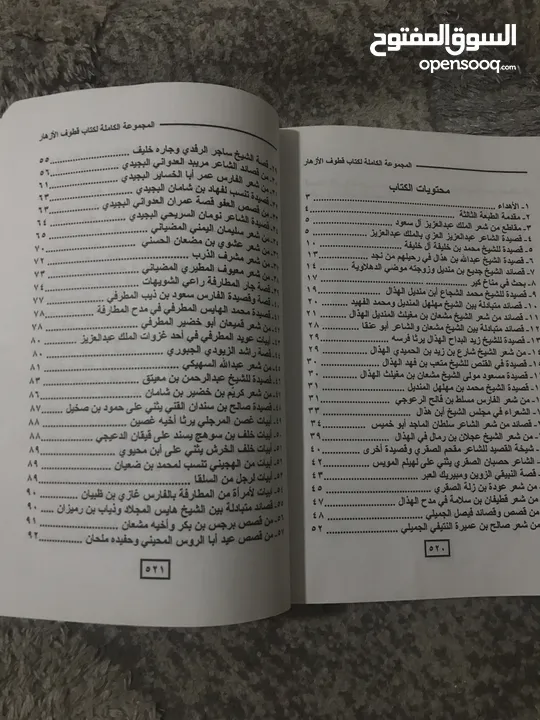 السوق المفتوح
opensooq.com
المجموعة الكاملة لكتاب قطوف الأزهار
محتويات الكتاب
١- الأهداء ٣
٢- مقدمة الطبعة الثالثة ٤
٣- مقاطع من شعر الملك عبدالعزيز آل سعود ٥
٤- قصيدة الشاعر عبدالعزيز العزي بالملك عبدالعزيز ٥
٥- قصيدة للشيخ محمد بن خليفة آل خليفة ١٠
٦- قصيدة الشيخ عبدالله بن هذال في رحيلهم من نجد ١٣
٧- قصائد الشيخ جديع بن منديل وزوجته موضي الدهلاوية ١٤
٨- بحث في مناخ كير ١٧
٩- قصيدة للشيخ محمد الشجاع أبن منديل الهذال ١٩
١٠- قصائد متبادلة بين الشيخ مهلهل المنديل ومحمد الفهيد ٢٠
١١- قصائد من شعر الشيخ مشعان بن مغيلث المنديل الهذال ٢١
١٢- قصائد متبادلة بين الشيخ مشعان والشاعر أبو عنقا ٢٨
١٣- قصيدة للشيخ زيد البداح الهذال يرثا فرسه ٢٩
١٤- من شعر الشيخ شارع بن زيد بن الحميدي الهذال ٢٩
١٥- قصيدة في القنص للشيخ متعب بن فهد الهذال ٣٠
١٦- قصيدة مسعود مولى الشيخ مشعان بن مغيلث الهذال ٣٠
١٧- قصيدة الشيخ محمد بن مهلهل المنديل ٣١
١٨- من شعر الفارس مسلط بن فالح الرعوجي ٣١
١٩- الشعراء في مجلس الشيخ أبن هذال ٣٣
٢٠- قصائد من شعر الشاعر سلطان الماجد أبو خميس ٣٤
من شعر الشيخ عجلان بن رمال في الهذال ٣٩
شيخة القصيد للشاعر مقحم الصقري وقصيدة أخرى ٤٠
الشاعر حصيان الصقري يثني على لهيلم المويس ٤٤
قصة النبيقي الزوين ومبيريك العبر ٤٤
من شعر عودة بن زلة الصقري ٤٥
من شعر قطيفان بن سلامة في مدح الهذال ٤٧
من قصص وقصائد فيصل الجميلي ٤٨
من شعر صالح بن عميرة النتيفي الجميلي ٥٢
٥٢٠
المجموعة الكاملة لكتاب قطوف الأزهار
قصة الشيخ ساجر الرفدي وجاره خليف ٥٥
من قصائد الشاعر مريبد العدواني البجيدي ٥٦
من شعر الفارس عمر أبا الخساير البجيدي ٦١
قصيدة تنسب لفهاد بن شامان البجيدي ٦٣
من قصص العفو قصة عمران العدواني البجيدي ٦٣
من شعر الشاعر نومان السريحي البجيدي ٦٤
من شعر سليمان اليمني المضياني ٦٥
من شعر عشوي بن مضعان الحسني ٧٠
من شعر مشرف الذرب ٧٢
من شعر معيوف المطيري المضياني ٧٣
قصة جار المطارفة راعي الشويهات ٧٤
قصة وقصيدة الفارس سعود بن ذيب المطرفي ٧٧
قصيدة محمد الهايس المطرفي في مدح المطارفة ٧٨
من شعر قميعان أبو خضير المطرفي ٧٨
أبيات عويد المطرفي في أحد غزوات الملك عبدالعزيز ٨٠
قصة راشد الزبودي الجبوري ٨٠
من شعر عبدالله السهيكي ٨١
قصيدة للشيخ عبدالرحمن بن معيتق ٨٣
من شعر كريم بن خضير بن شامان ٨٦
قصيدة صالح بن سندان القني يثني على حمود بن صخيل ٨٧
أبيات غصن المرجلي يرثا أخيه غصين ٨٨
أبيات خلف بن سوهج يسند على فيقان الدعيجي ٨٨
أبيات خلف الخرش يثني على أبن محيوي ٨٩
من الهجيني تنسب لمحمد بن ضعيان ٨٩
أبيات لرجل من السلقا ٨٩
أبيات لأمرأة من المطارفة بالفارس غازي بن ظبيان ٩٠
قصائد متبادلة بين الشيخ هايس المجلاد وذياب بن رميزان ٩٠
من قصص برجس بن بكر وأخيه مشعان ٩١
من قصص عيد أبا الروس المحيني وحفيده ملحان ٩٢
٥٢١